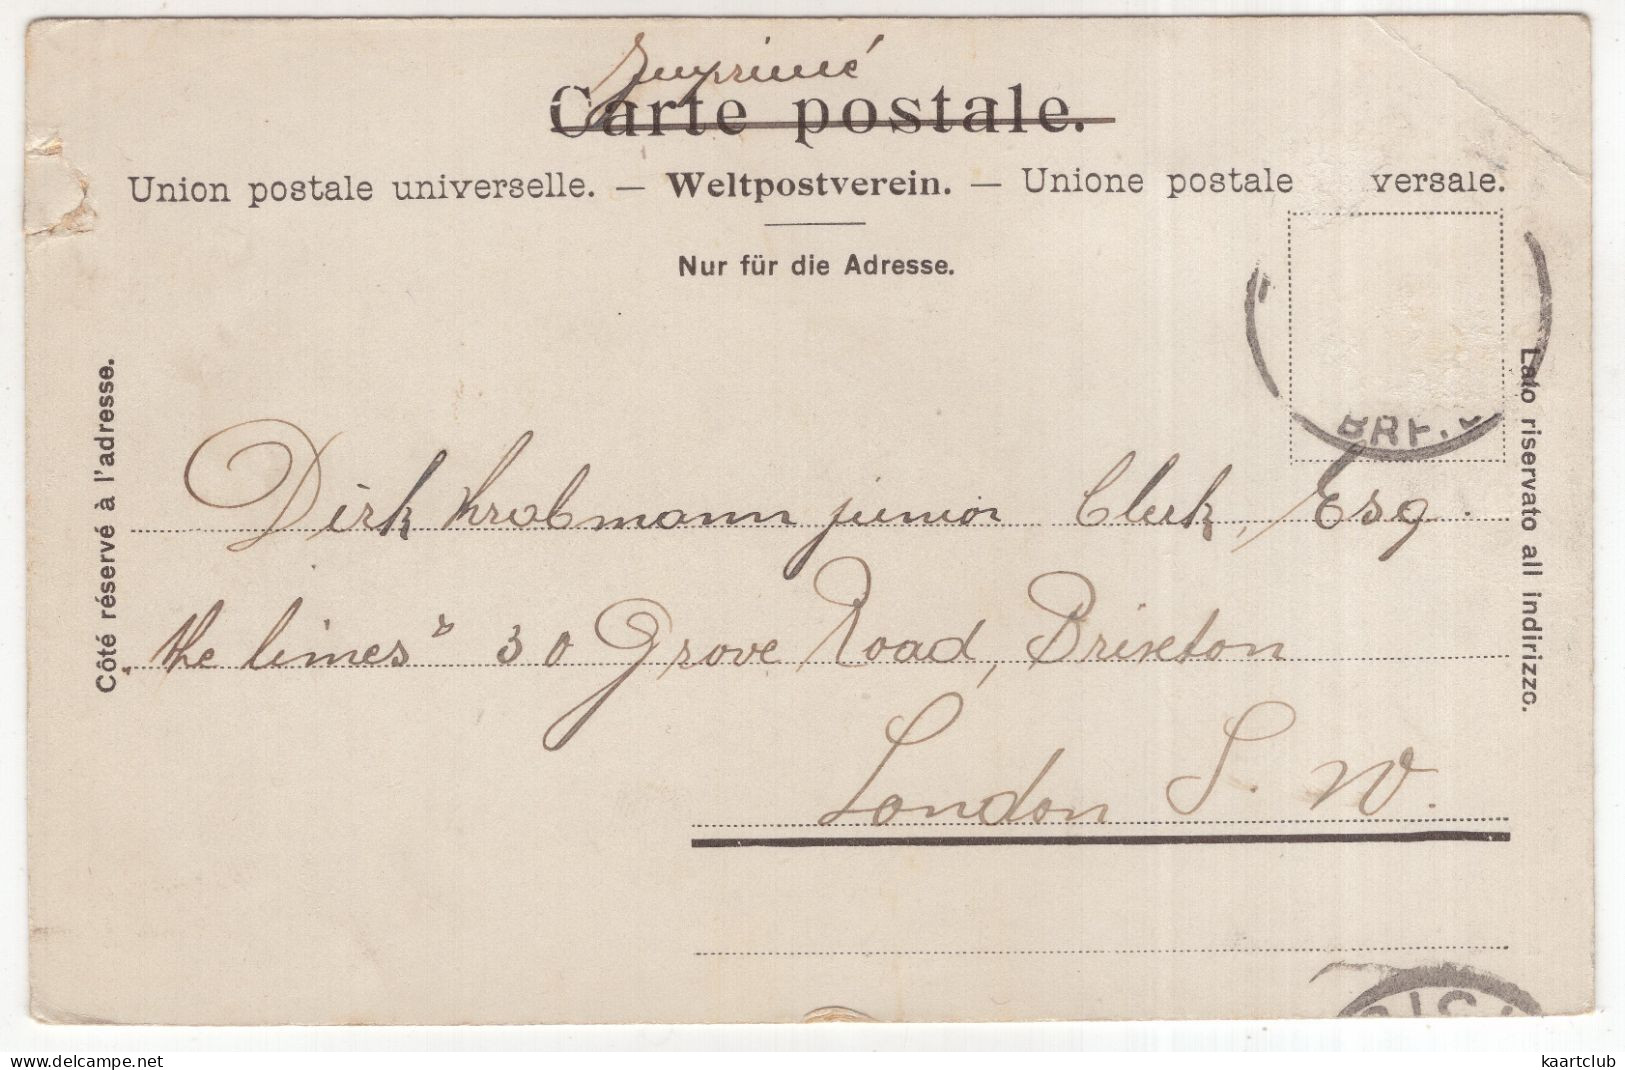 Imprimé
Carte postale.
Union postale universelle. — Weltpostverein. — Unione postale versale.
Nur für die Adresse.
Côté réservé à l'adresse.
Lato riservato all indirizzo.
BRF.
Dirk Krabmann junior Clerk, Esq.
"the limes" 30 Grove Road, Brixton
London S. W.
delcampe.net
kaartclub